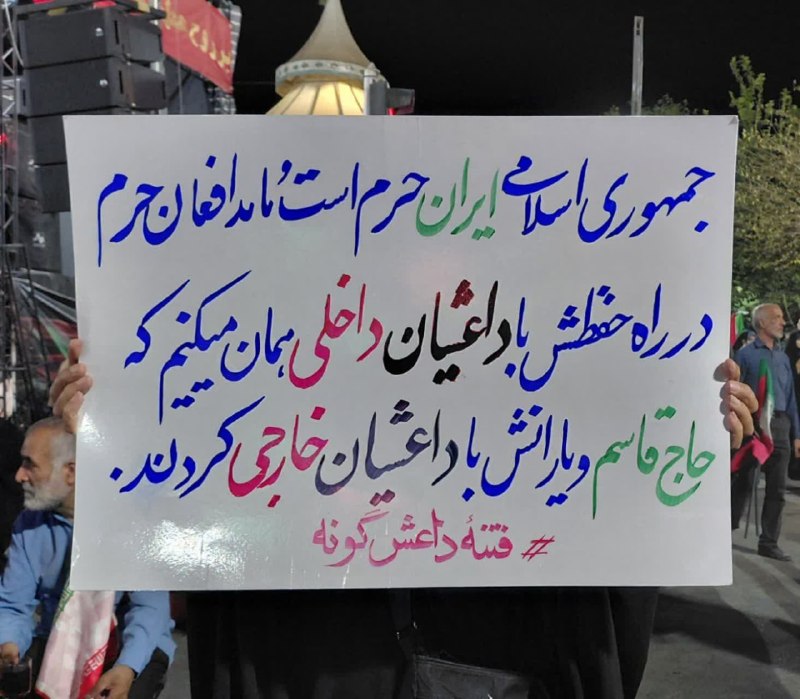 جمهوری اسلامی ایران حرم است و ما مدافعان حرم
در راه حفظش با داعشیان داخلی همان میکنیم که
حاج قاسم و یارانش با داعشیان خارجی کردند.
# فتنهٔ داعش گونه